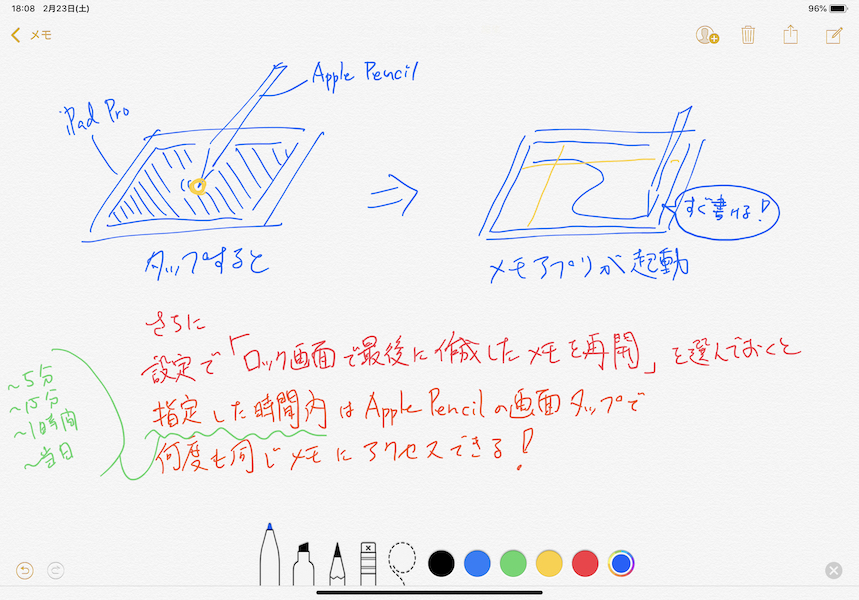 18:08 2月23日(土)
96%
メモ
Apple Pencil
iPad Pro
すぐ書ける!
タップすると
メモアプリが起動
さらに
設定で「ロック画面で最後に作成したメモを再開」を選んでおくと
指定した時間内はApple Pencilの画面タップで
何度も同じメモにアクセスできる!
~5分
~15分
~1時間
~当日